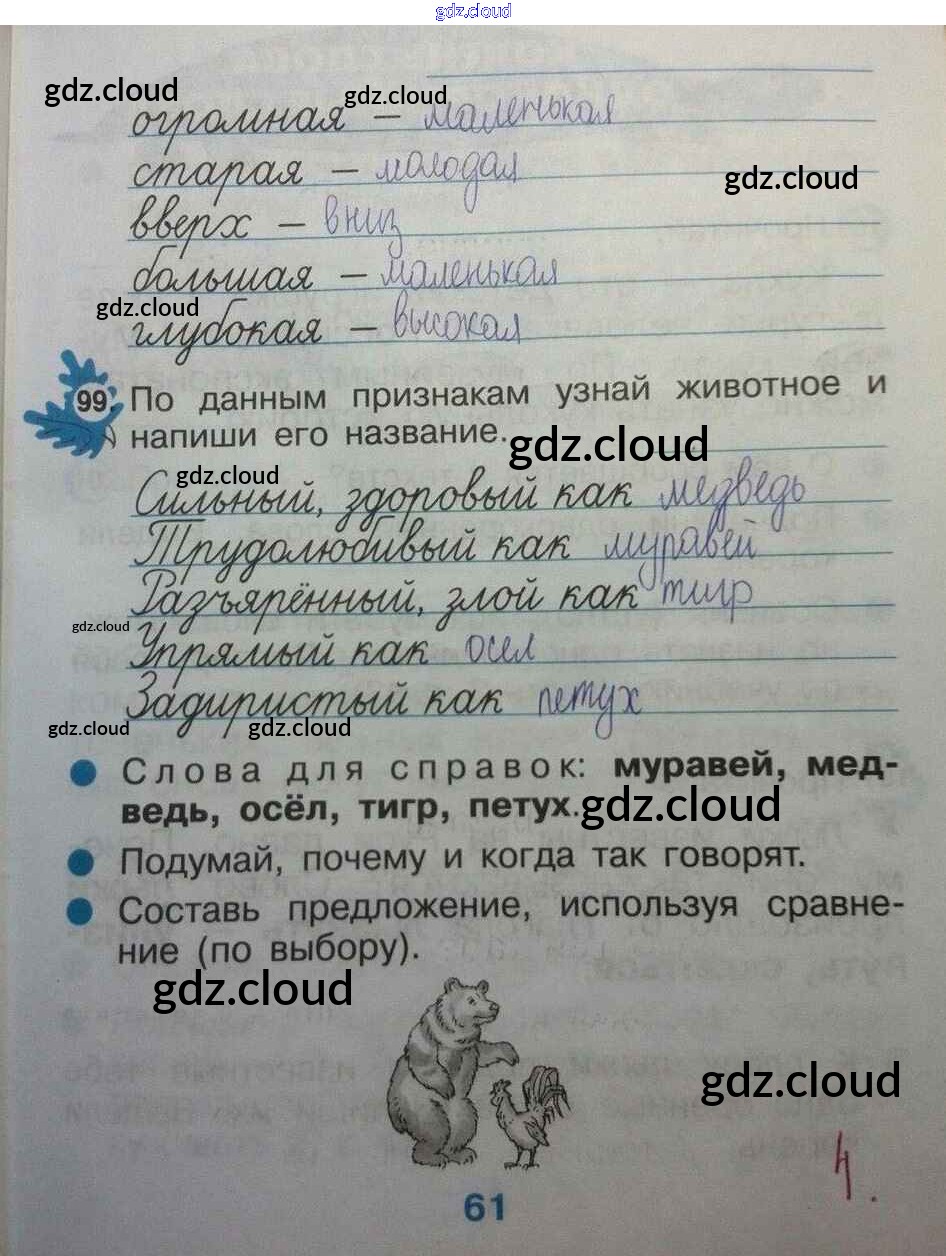 gdz.cloud
gdz.cloud
gdz.cloud
огромная – маленькая
старая – молодая
gdz.cloud
вверх – вниз
большая – маленькая
gdz.cloud
глубокая – высокая
99. По данным признакам узнай животное и
напиши его название.
gdz.cloud
gdz.cloud
Сильный, здоровый как медведь
Трудолюбивый как муравей
Разъярённый, злой как тигр
gdz.cloud
Упрямый как осел
Задиристый как петух
gdz.cloud
gdz.cloud
● Слова для справок: муравей, мед-
ведь, осёл, тигр, петух.
gdz.cloud
● Подумай, почему и когда так говорят.
● Составь предложение, используя сравне-
ние (по выбору).
gdz.cloud
gdz.cloud
4.
61